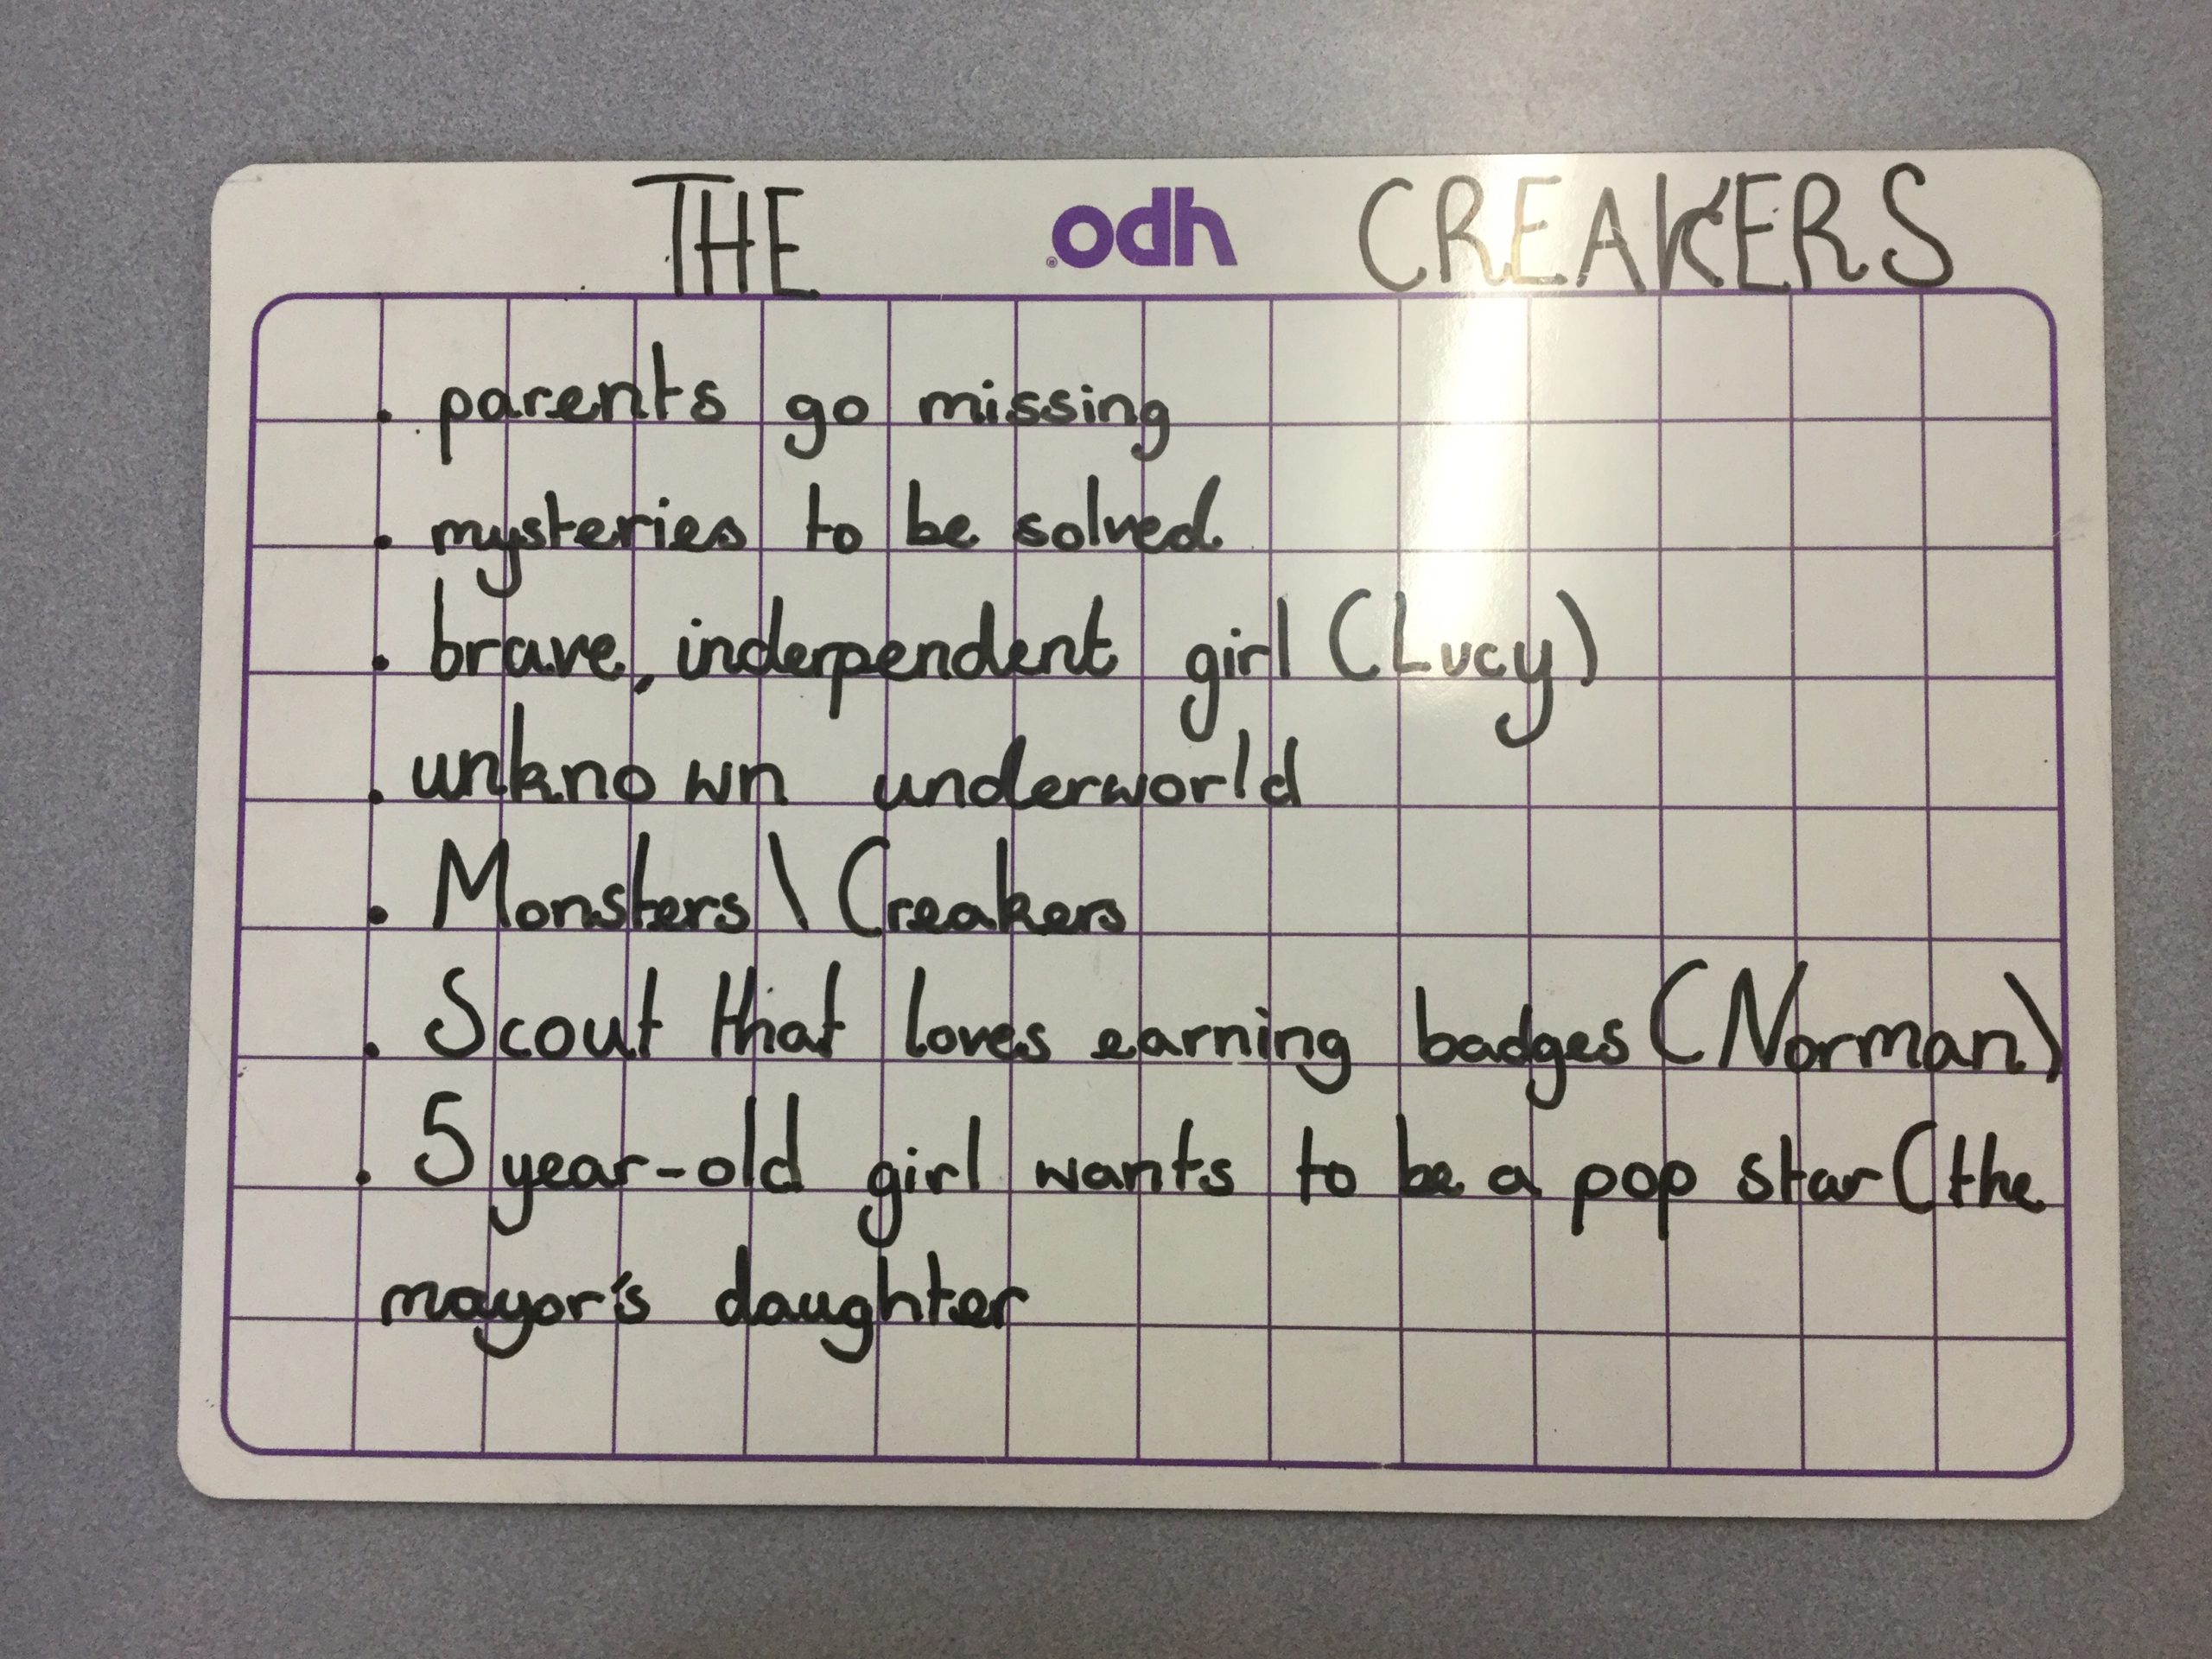 THE odh® CREAKERS
. parents go missing
. mysteries to be solved.
. brave, independent girl (Lucy)
. unknown underworld
. Monsters \ Creakers
. Scout that loves earning badges (Norman)
. 5 year-old girl wants to be a pop star (the
mayor's daughter